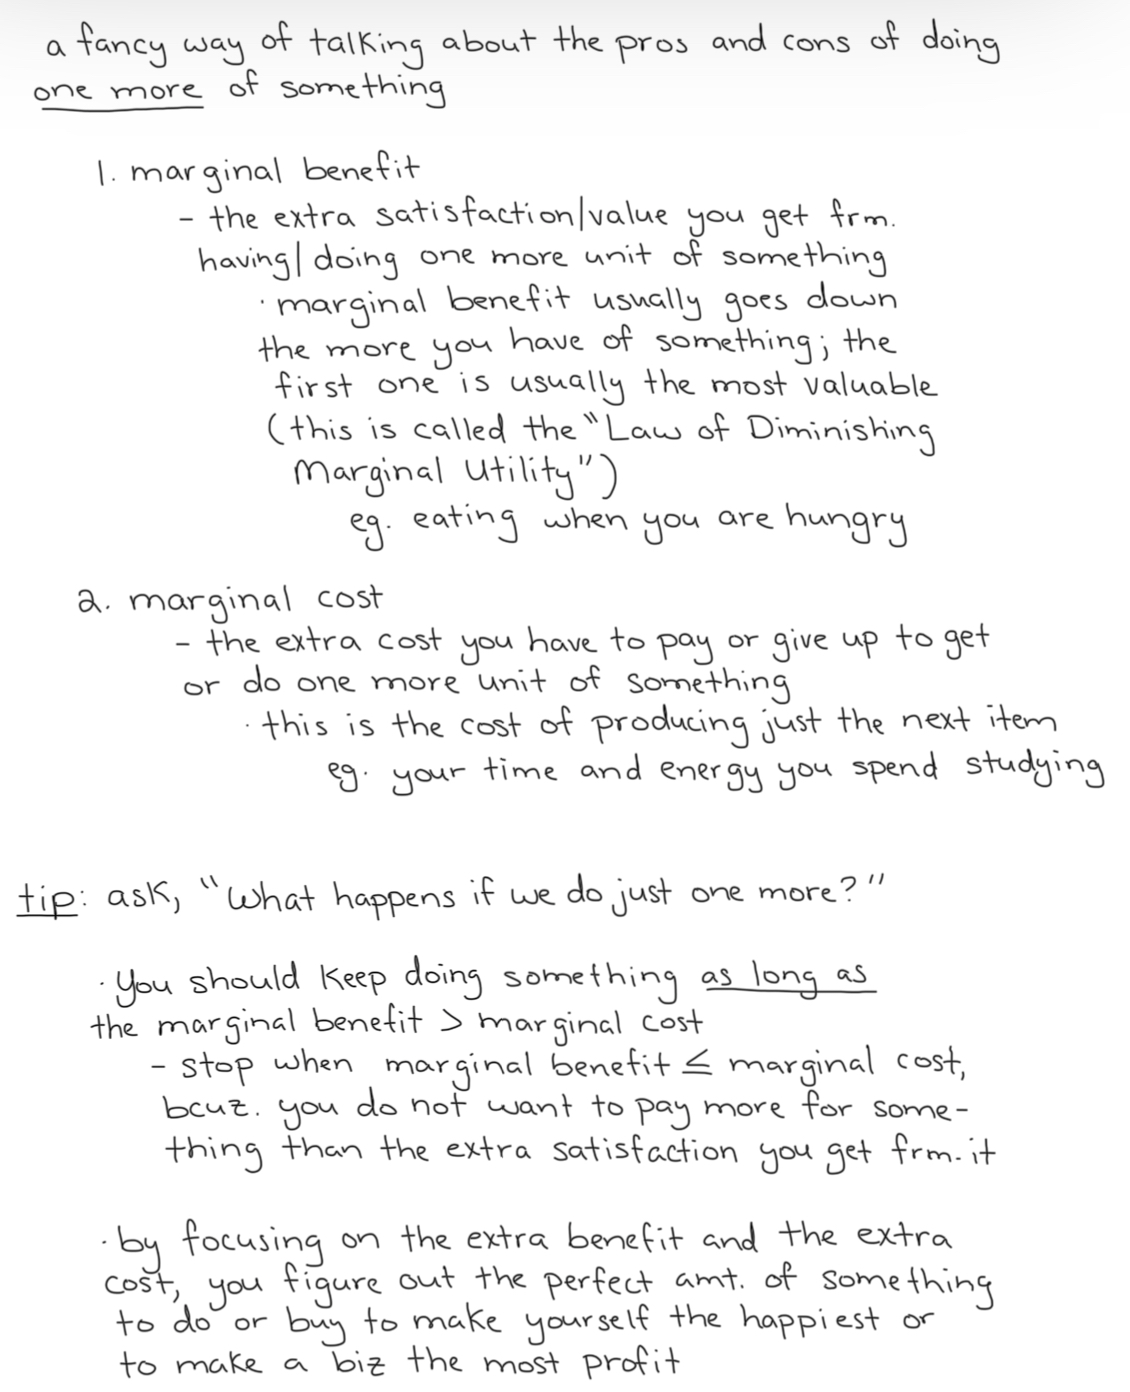 a fancy way of talking about the pros and cons of doing
one more of something
1. marginal benefit
- the extra satisfaction/value you get frm.
having/doing one more unit of something
· marginal benefit usually goes down
the more you have of something; the
first one is usually the most valuable
(this is called the "Law of Diminishing
Marginal Utility")
eg. eating when you are hungry
2. marginal cost
- the extra cost you have to pay or give up to get
or do one more unit of something
· this is the cost of producing just the next item
eg. your time and energy you spend studying
tip: ask, "What happens if we do just one more?"
· You should keep doing something as long as
the marginal benefit > marginal cost
- stop when marginal benefit ≤ marginal cost,
bcuz. you do not want to pay more for some-
thing than the extra satisfaction you get frm. it
· by focusing on the extra benefit and the extra
cost, you figure out the perfect amt. of something
to do or buy to make yourself the happiest or
to make a biz the most profit